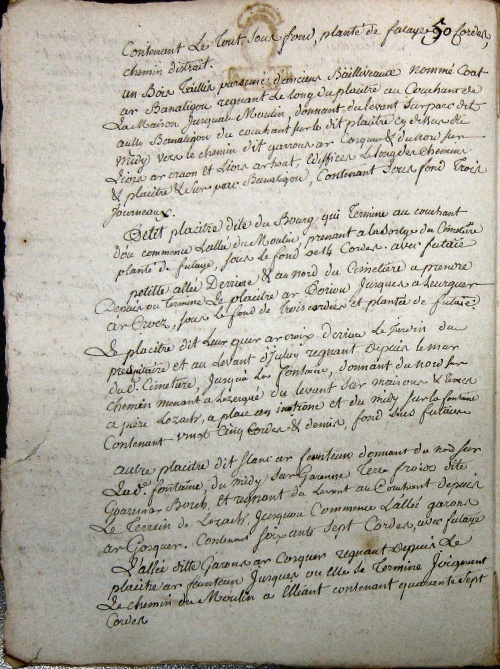 Contenant Le Tout sous fond, planté de futaye 50 Cordes,
chemin distrait.
un Bois Taillis parsemé d'anciens Bailliveaux nommé Coat
ar Banaligou regnant Le long du placitre au Couchant de
La Maison Jusqu'au Moulin, donnant du levant sur parc dit
aussy Banaligou du couchant sur le dit placitre cy dessus du
midy vers le chemin dit garront ar Cosquer & du nord sur
Liors ar craon et Liors ar hout, Ediffices le long des Chemins
& placitre & sur parc Banaligou, Contenant sous fond Trois
Journeaux.
Petit placitre dite du Bourg qui Termine au couchant
d'ou commence L'allée du Moulin, prenant a la sortye du Cimetière
planté de futaye, sous le fond de 14 Cordes. avec futaie
petitte allée Derriere & au nord du Cimetière a prendre
Depuis ou termine Le placitre ar Jusques a
ar Croez, sous le fond de trois cordes et plantée de futaie
Le placitre dit Leur quer ar croix d'oriau Le Jardin du
presbitaire et au Levant d'iceluy regnant Depuis le mur
du d. Cimetière, Jusqu'a La fontaine, donnant du nord sur
chemin menant a Lezerque du levant sur maisons &
a père Lozach, a place et du midy sur la fontaine
Contenant vingt Cinq Cordes & demis, fond sans futaie
autre placitre dit flanc ar feunteun donnant du nord sur
La d. fontaine, du midy sur Garenne Terre froide dite
Goaremar Borch, et regnant du Levant au Couchant depuis
Le Terrein de Lozach, Jusqu'ou Commence L'allée garons
ar Gosquer. Contenant soixante sept Cordes, avec futaye
L'allée ditte Garons ar Cosquer regnant Depuis Le
placitre ar feunteun Jusques ou Elle se Termine Joignant
Le chemin du Moulin a Elliant contenant quarante sept
Cordes